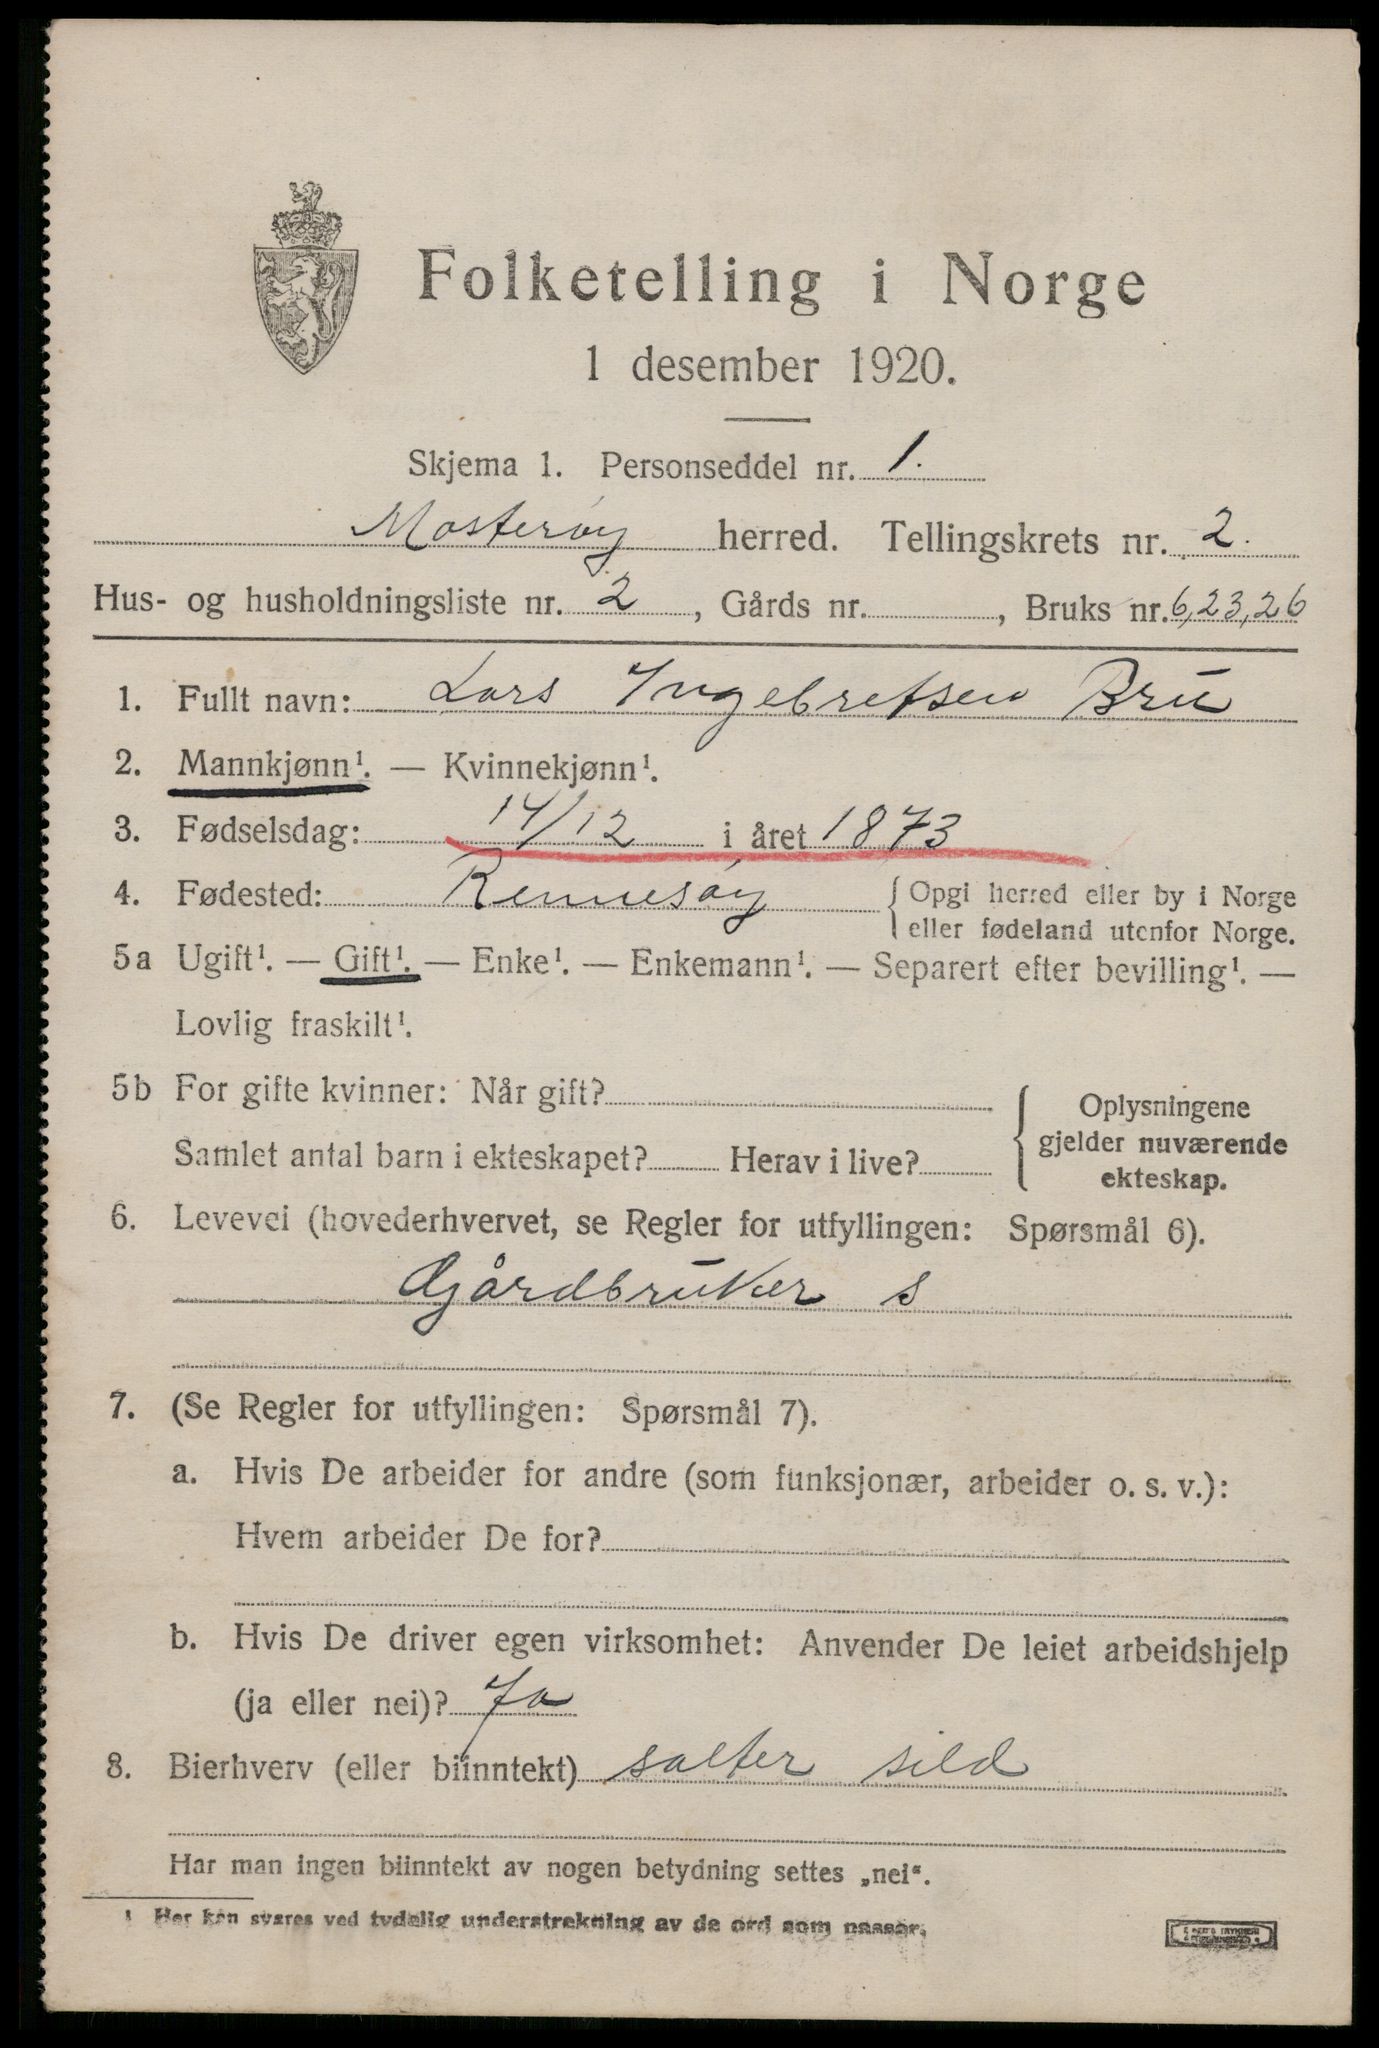 Folketelling i Norge
1 desember 1920.
Skjema 1. Personseddel nr. 1.
Mosterøy herred. Tellingskrets nr. 2.
Hus- og husholdningsliste nr. 2, Gårds nr. , Bruks nr. 6,23,26
1. Fullt navn: Lars Ingebretsen Bru
2. Mannkjønn¹. — Kvinnekjønn¹.
3. Fødselsdag: 14/12 i året 1873
4. Fødested: Rennesøy { Opgi herred eller by i Norge
eller fødeland utenfor Norge.
5a Ugift¹. — Gift¹. — Enke¹. — Enkemann¹. — Separert efter bevilling¹. —
Lovlig fraskilt¹.
5b For gifte kvinner: Når gift?
Samlet antal barn i ekteskapet? Herav i live?
{ Oplysningene
gjelder nuværende
ekteskap.
6. Levevei (hovederhvervet, se Regler for utfyllingen: Spørsmål 6).
Gårdbruker s
7. (Se Regler for utfyllingen: Spørsmål 7).
a. Hvis De arbeider for andre (som funksjonær, arbeider o. s. v.):
Hvem arbeider De for?
b. Hvis De driver egen virksomhet: Anvender De leiet arbeidshjelp
(ja eller nei)? Ja
8. Bierhverv (eller biinntekt) salter sild
Har man ingen biinntekt av nogen betydning settes „nei“.
¹ Her kan svares ved tydelig understrekning av de ord som passer.